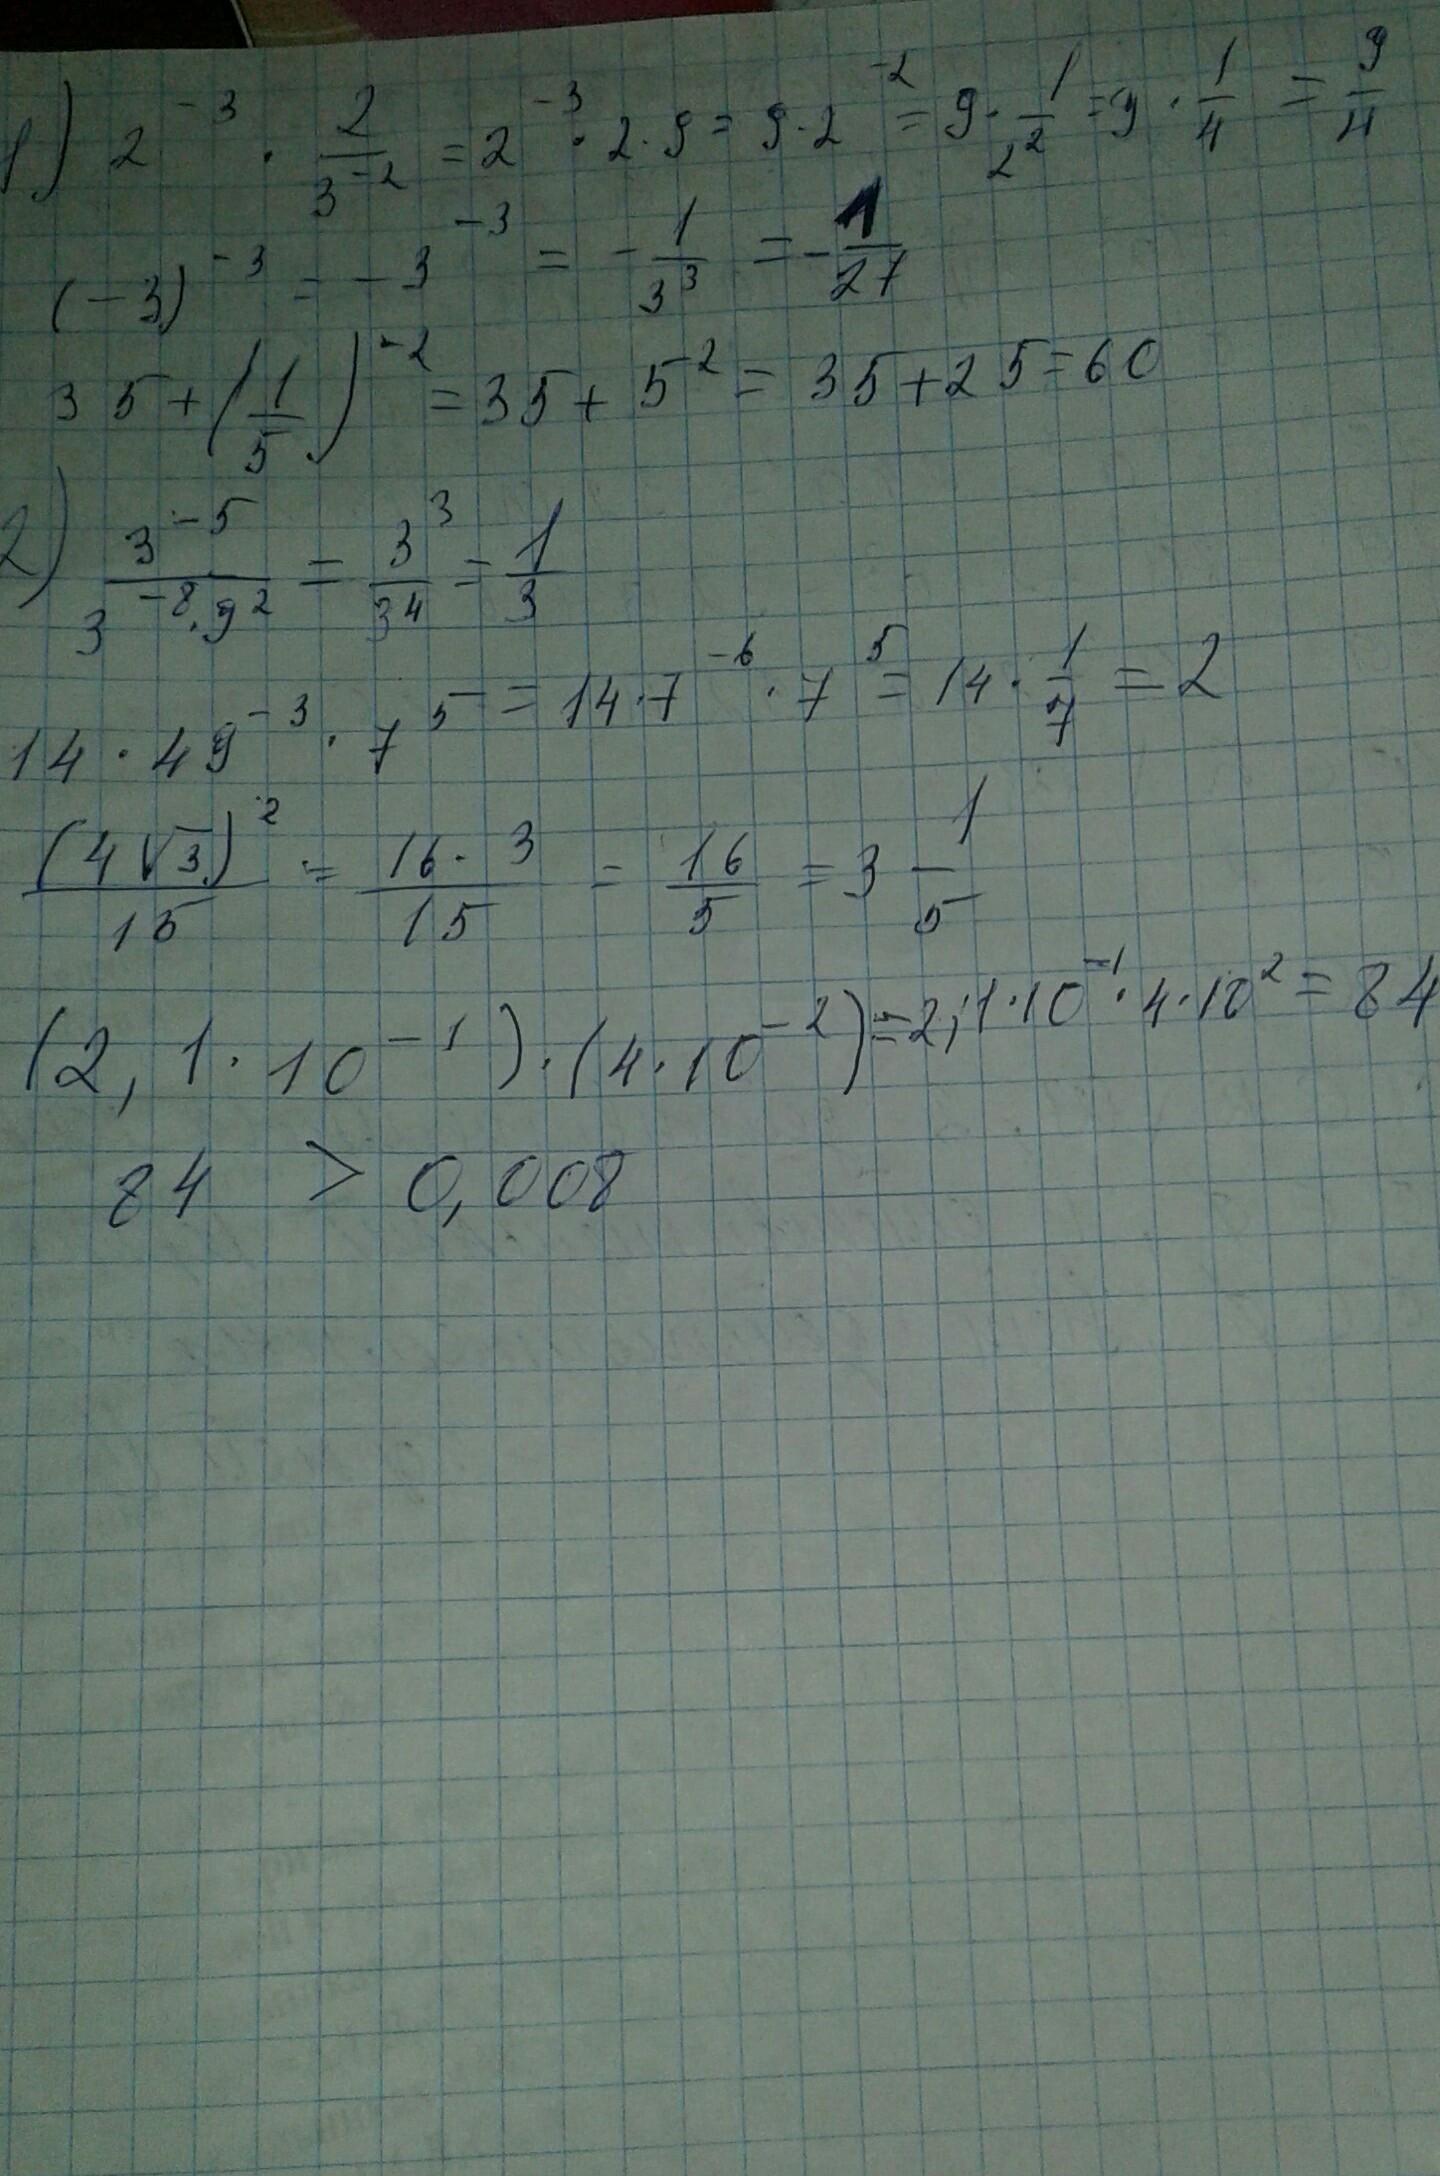 1) 2^-3 · 2/3^-2 = 2^-3 · 2 · 9 = 9 · 2^-2 = 9 · 1/2^2 = 9 · 1/4 = 9/4
(-3)^-3 = -3^-3 = -1/3^3 = -1/27
35 + (1/5)^-2 = 35 + 5^2 = 35 + 25 = 60
2) 3^-5/3^-8 · 9^2 = 3^3/3^4 = 1/3
14 · 49^-3 · 7^5 = 14 · 7^-6 · 7^5 = 14 · 1/7 = 2
(4√3)^2/15 = 16 · 3/15 = 16/5 = 3 1/5
(2,1 · 10^-1) · (4 · 10^-2) = 2,1 · 10^-1 · 4 · 10^2 = 84
84 > 0,008